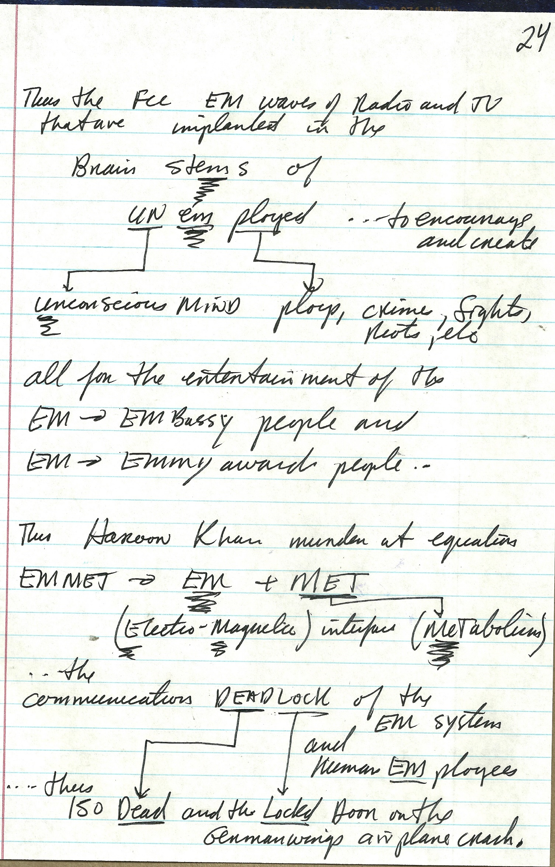 24
Thus the FCC EM waves of Radio and TV
that are implanted in the
Brain stems of
UN em ployed ...to encourage
and create
unconscious MIND ploys, crimes, fights,
riots, etc
all for the entertainment of the
EM → EMBassy people and
EM → Emmy awards people..
This Haroon Khan murder at equation
EMMET → EM + MET
(Electro-Magnetic) interface (Metabolism)
...the
communication DEADLOCK of the
EM system
and
Human EM ployees
....thus
150 Dead and the Locked Door on the
Germanwings airplane crash.